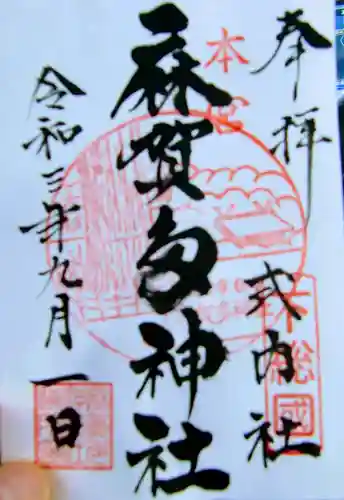 奉拝
式内社
下総國
本宮
麻賀多神社
令和三年九月一日